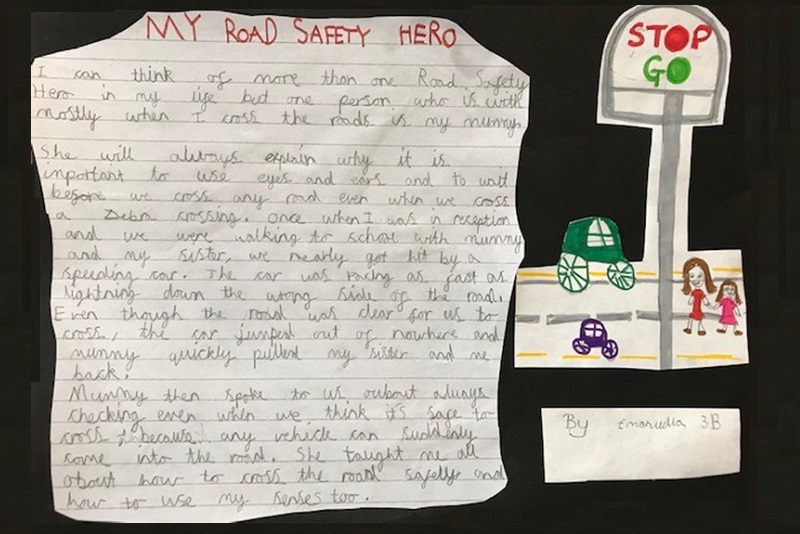 MY ROAD SAFETY HERO
I can think of more than one Road Safety
Hero in my life but one person who is with
mostly when I cross the roads is my mummy
She will always explain why it is
important to use eyes and ears and to wait
before we cross any road even when we cross
a Zebra crossing. Once when I was in reception
and we were walking to school with mummy
and my sister, we nearly got hit by a
speeding car. The car was racing as fast as
lightning down the wrong side of the road.
Even though the road was clear for us to
cross, the car jumped out of nowhere and
mummy quickly pulled my sister and me
back.
Mummy then spoke to us about always
checking even when we think it's safe to
cross because any vehicle can suddenly
come into the road. She taught me all
about how to cross the road safely and
how to use my senses too.
STOP
GO
By 3B